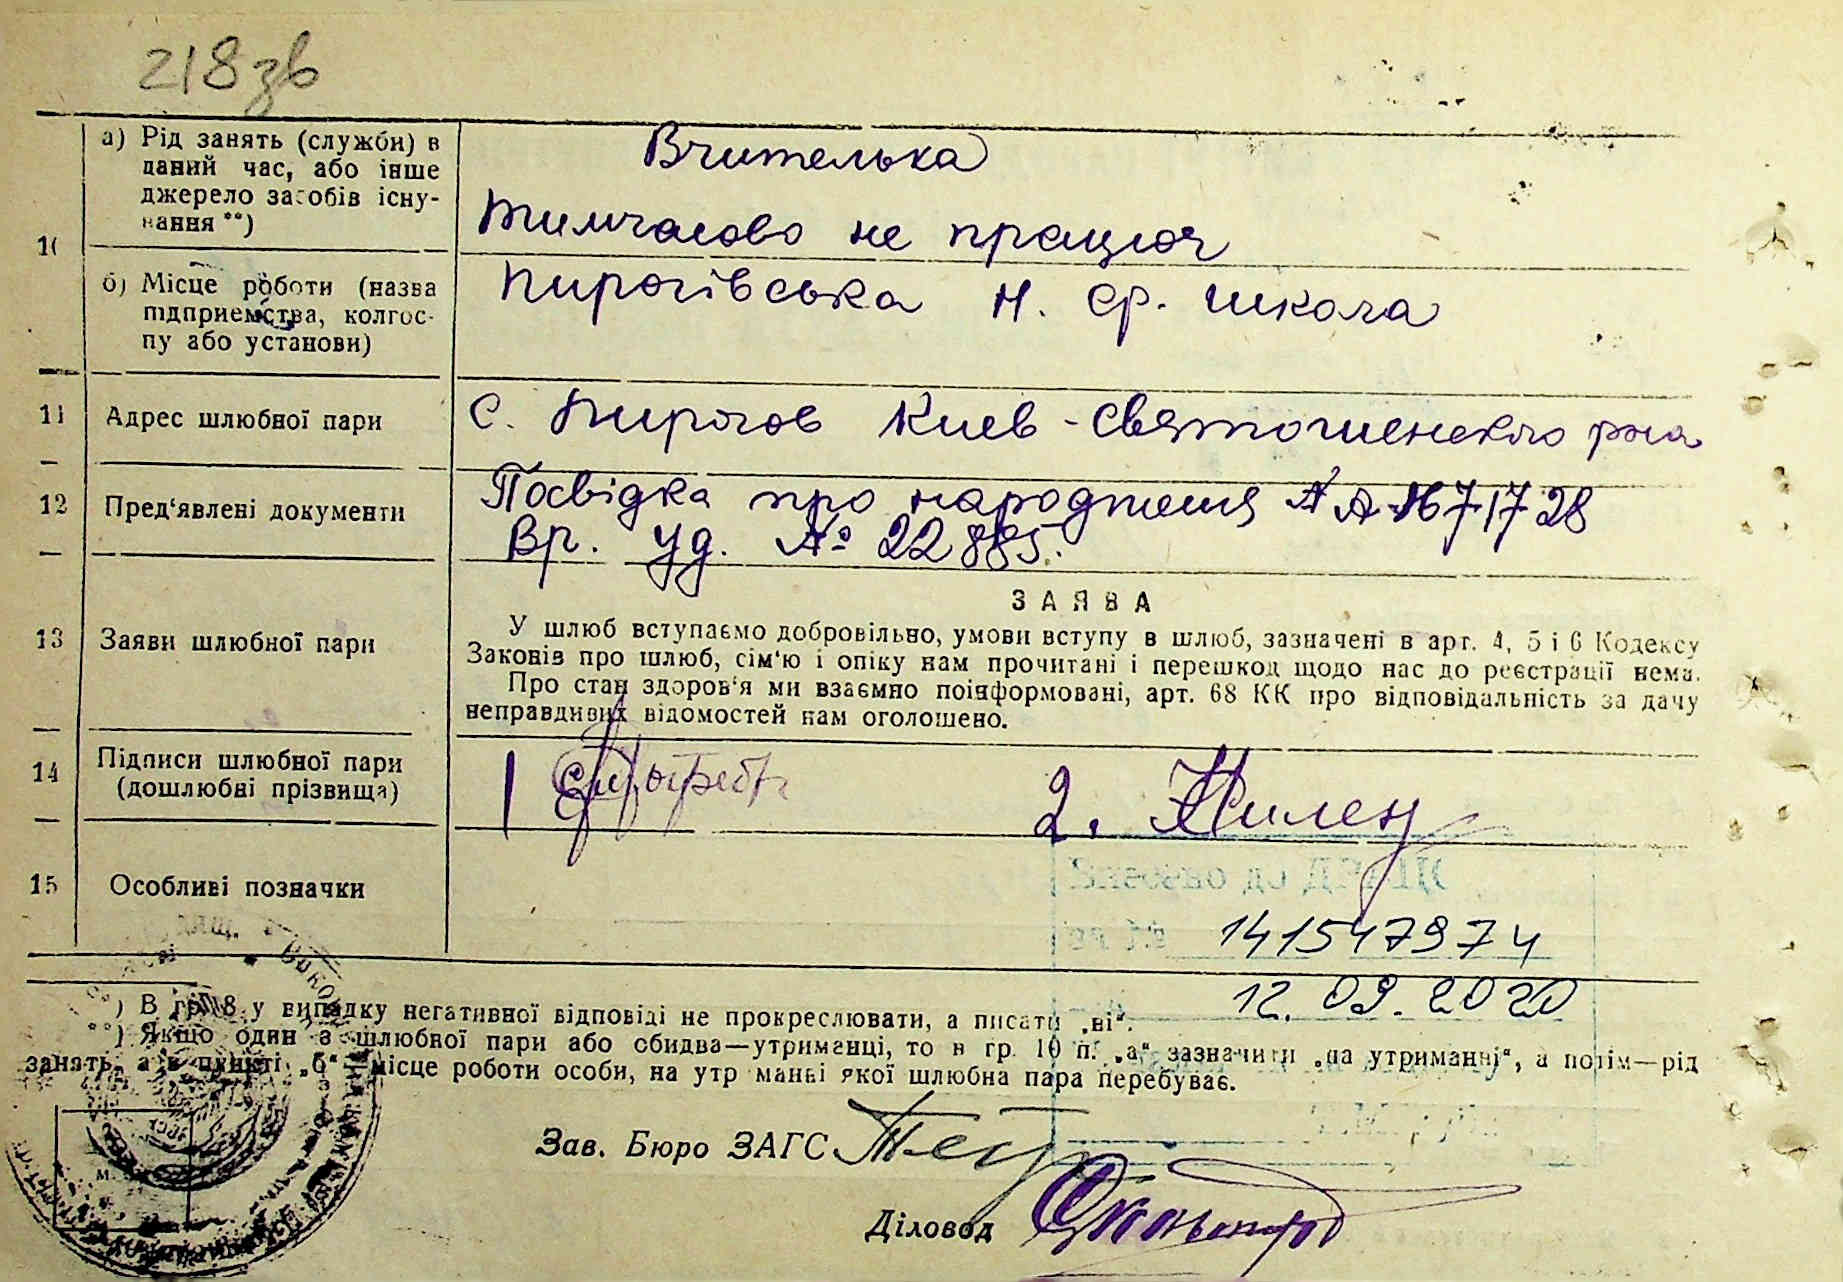 218зв
а) Рід занять (служби) в
даний час, або інше
джерело засобів існу-
вання **)
Вчителька
тимчасово не працюч
10
б) Місце роботи (назва
підприємства, колгос-
пу або установи)
Пирогівська н. ср. школа
11 Адрес шлюбної пари
с. Пирогов Киев-Святошенского р-на
12 Пред'явлені документи
Посвідка про народження
Вр. уд. № 22885.
13 Заяви шлюбної пари
ЗАЯВА
У шлюб вступаємо добровільно, умови вступу в шлюб, зазначені в арт. 4, 5 і 6 Кодексу
Законів про шлюб, сім'ю і опіку нам прочитані і перешкод щодо нас до реєстрації нема.
Про стан здоров'я ми взаємно поінформовані, арт. 68 КК про відповідальність за дачу
неправдивих відомостей нам оголошено.
14 Підписи шлюбної пари
(дошлюбні прізвища)
1
2.
15 Особливі позначки
141547974
12.09.2020
*) В гр. 8 у випадку негативної відповіді не прокреслювати, а писати „ні“.
**) Якщо один з шлюбної пари або обидва—утриманці, то в гр. 10 п. „а“ зазначити „на утриманні“, а потім—рід
занять, а в пункті „б“ місце роботи особи, на утриманні якої шлюбна пара перебуває.
Зав. Бюро ЗАГС
Діловод